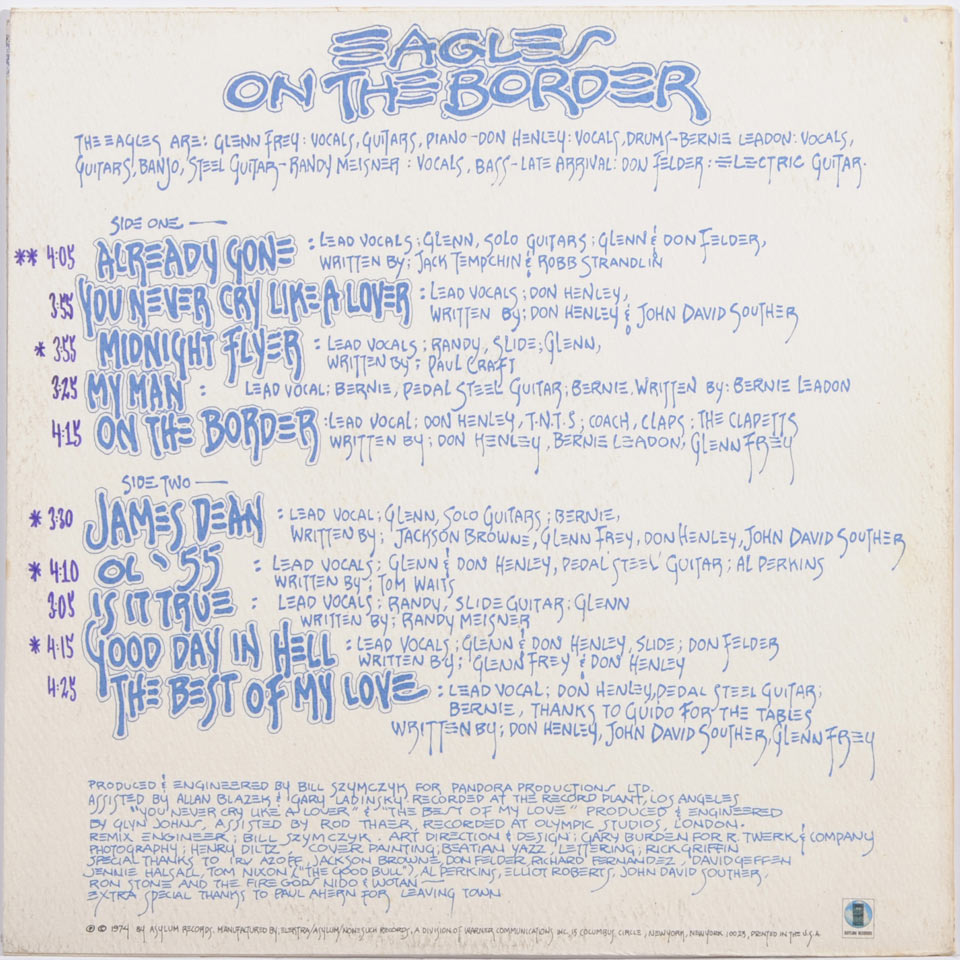 EAGLES
ON THE BORDER
THE EAGLES ARE: GLENN FREY: VOCALS, GUITARS, PIANO-DON HENLEY: VOCALS, DRUMS-BERNIE LEADON: VOCALS,
GUITARS, BANJO, STEEL GUITAR-RANDY MEISNER: VOCALS, BASS-LATE ARRIVAL: DON FELDER: ELECTRIC GUITAR.
SIDE ONE —
** 4:05 ALREADY GONE : LEAD VOCALS; GLENN, SOLO GUITARS; GLENN & DON FELDER,
WRITTEN BY; JACK TEMPCHIN & ROBB STRANDLIN
3:55 YOU NEVER CRY LIKE A LOVER : LEAD VOCALS; DON HENLEY,
WRITTEN BY; DON HENLEY & JOHN DAVID SOUTHER
* 3:55 MIDNIGHT FLYER : LEAD VOCALS; RANDY, SLIDE; GLENN,
WRITTEN BY: PAUL CRAFT
3:25 MY MAN : LEAD VOCAL: BERNIE, PEDAL STEEL GUITAR; BERNIE, WRITTEN BY: BERNIE LEADON
4:15 ON THE BORDER : LEAD VOCAL: DON HENLEY, T.N.T.S; COACH, CLAPS: THE CLAPETTS
WRITTEN BY; DON HENLEY, BERNIE LEADON, GLENN FREY
SIDE TWO —
* 3:30 JAMES DEAN : LEAD VOCAL; GLENN, SOLO GUITARS; BERNIE,
WRITTEN BY; JACKSON BROWNE, GLENN FREY, DON HENLEY, JOHN DAVID SOUTHER
* 4:10 OL '55 : LEAD VOCALS; GLENN & DON HENLEY, PEDAL STEEL GUITAR; AL PERKINS
WRITTEN BY; TOM WAITS
3:05 IS IT TRUE : LEAD VOCALS; RANDY, SLIDE GUITAR; GLENN
WRITTEN BY; RANDY MEISNER
* 4:15 GOOD DAY IN HELL : LEAD VOCALS; GLENN & DON HENLEY, SLIDE; DON FELDER
WRITTEN BY; GLENN FREY & DON HENLEY
4:25 THE BEST OF MY LOVE : LEAD VOCAL; DON HENLEY, PEDAL STEEL GUITAR;
BERNIE, THANKS TO GUIDO FOR THE TABLES
WRITTEN BY; DON HENLEY, JOHN DAVID SOUTHER, GLENN FREY
PRODUCED & ENGINEERED BY BILL SZYMCZYK FOR PANDORA PRODUCTIONS LTD.
ASSISTED BY ALLAN BLAZEK & GARY LADINSKY. RECORDED AT THE RECORD PLANT, LOS ANGELES
"YOU NEVER CRY LIKE A LOVER" & "THE BEST OF MY LOVE" PRODUCED & ENGINEERED
BY GLYN JOHNS, ASSISTED BY ROD THAER, RECORDED AT OLYMPIC STUDIOS, LONDON.
REMIX ENGINEER; BILL SZYMCZYK. ART DIRECTION & DESIGN: GARY BURDEN FOR R. TWERK & COMPANY
PHOTOGRAPHY; HENRY DILTZ COVER PAINTING; BEATIAN YAZZ, LETTERING; RICK GRIFFIN
SPECIAL THANKS TO IRV AZOFF, JACKSON BROWNE, DON FELDER, RICHARD FERNANDEZ, DAVID GEFFEN
JENNIE HALSALL, TOM NIXON ("THE GOOD BULL"), AL PERKINS, ELLIOT ROBERTS, JOHN DAVID SOUTHER.
RON STONE AND THE FIRE GODS NIDO & WOTAN—
EXTRA SPECIAL THANKS TO PAUL AHERN FOR LEAVING TOWN
℗ © 1974 BY ASYLUM RECORDS. MANUFACTURED BY ELEKTRA/ASYLUM/NONESUCH RECORDS, A DIVISION OF WARNER COMMUNICATIONS INC. 15 COLUMBUS CIRCLE, NEW YORK, NEW YORK 10023, PRINTED IN THE U.S.A.
ASYLUM RECORDS